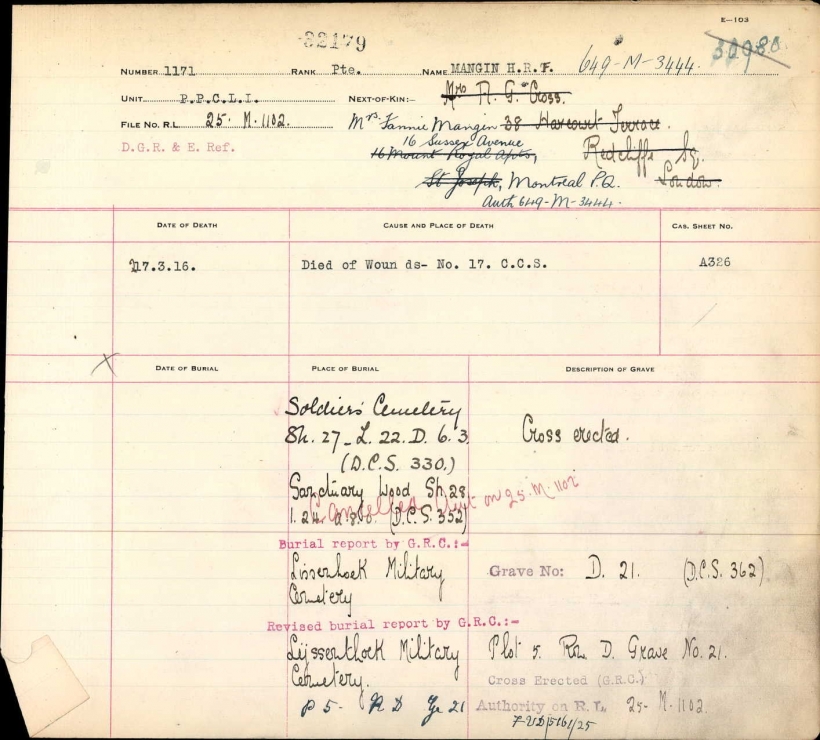 E-103
32179
30980
NUMBER 1171 RANK Pte. NAME MANGIN H.R.F. 649-M-3444.
UNIT P.P.C.L.I. NEXT-OF-KIN:- Mrs G. Cross.
FILE No. R.L. 25. M.1102. Mrs. Fannie Mangin 38 Harcourt Terrace.
D.G.R. & E. Ref. 16 Sussex Avenue
16 Mount Royal Apts, Redcliffe Sq.
St Joseph, Montreal P.Q. London.
Auth 649-M-3444.
DATE OF DEATH CAUSE AND PLACE OF DEATH CAS. SHEET NO.
17.3.16. Died of Woun ds- No. 17. C.C.S. A326
DATE OF BURIAL PLACE OF BURIAL DESCRIPTION OF GRAVE
Soldiers' Cemetery
Sh. 27_L. 22.D. 6.3 Cross erected.
(D.C.S. 330.)
Sanctuary Wood Sh 28
Cancelled Aut on 25.M.1102
1. 24. a.8.8. (D.C.S. 352)
Burial report by G.R.C.:-
Lissenhoek Military Grave No: D. 21. (D.C.S. 362)
Cemetery
Revised burial report by G.R.C.:-
Lijssenthoek Military Plot 5. Row D. Grave No. 21.
Cemetery. Cross Erected (G.R.C.)
P 5- R D Gr 21 Authority on R.L. 25- M.1102.